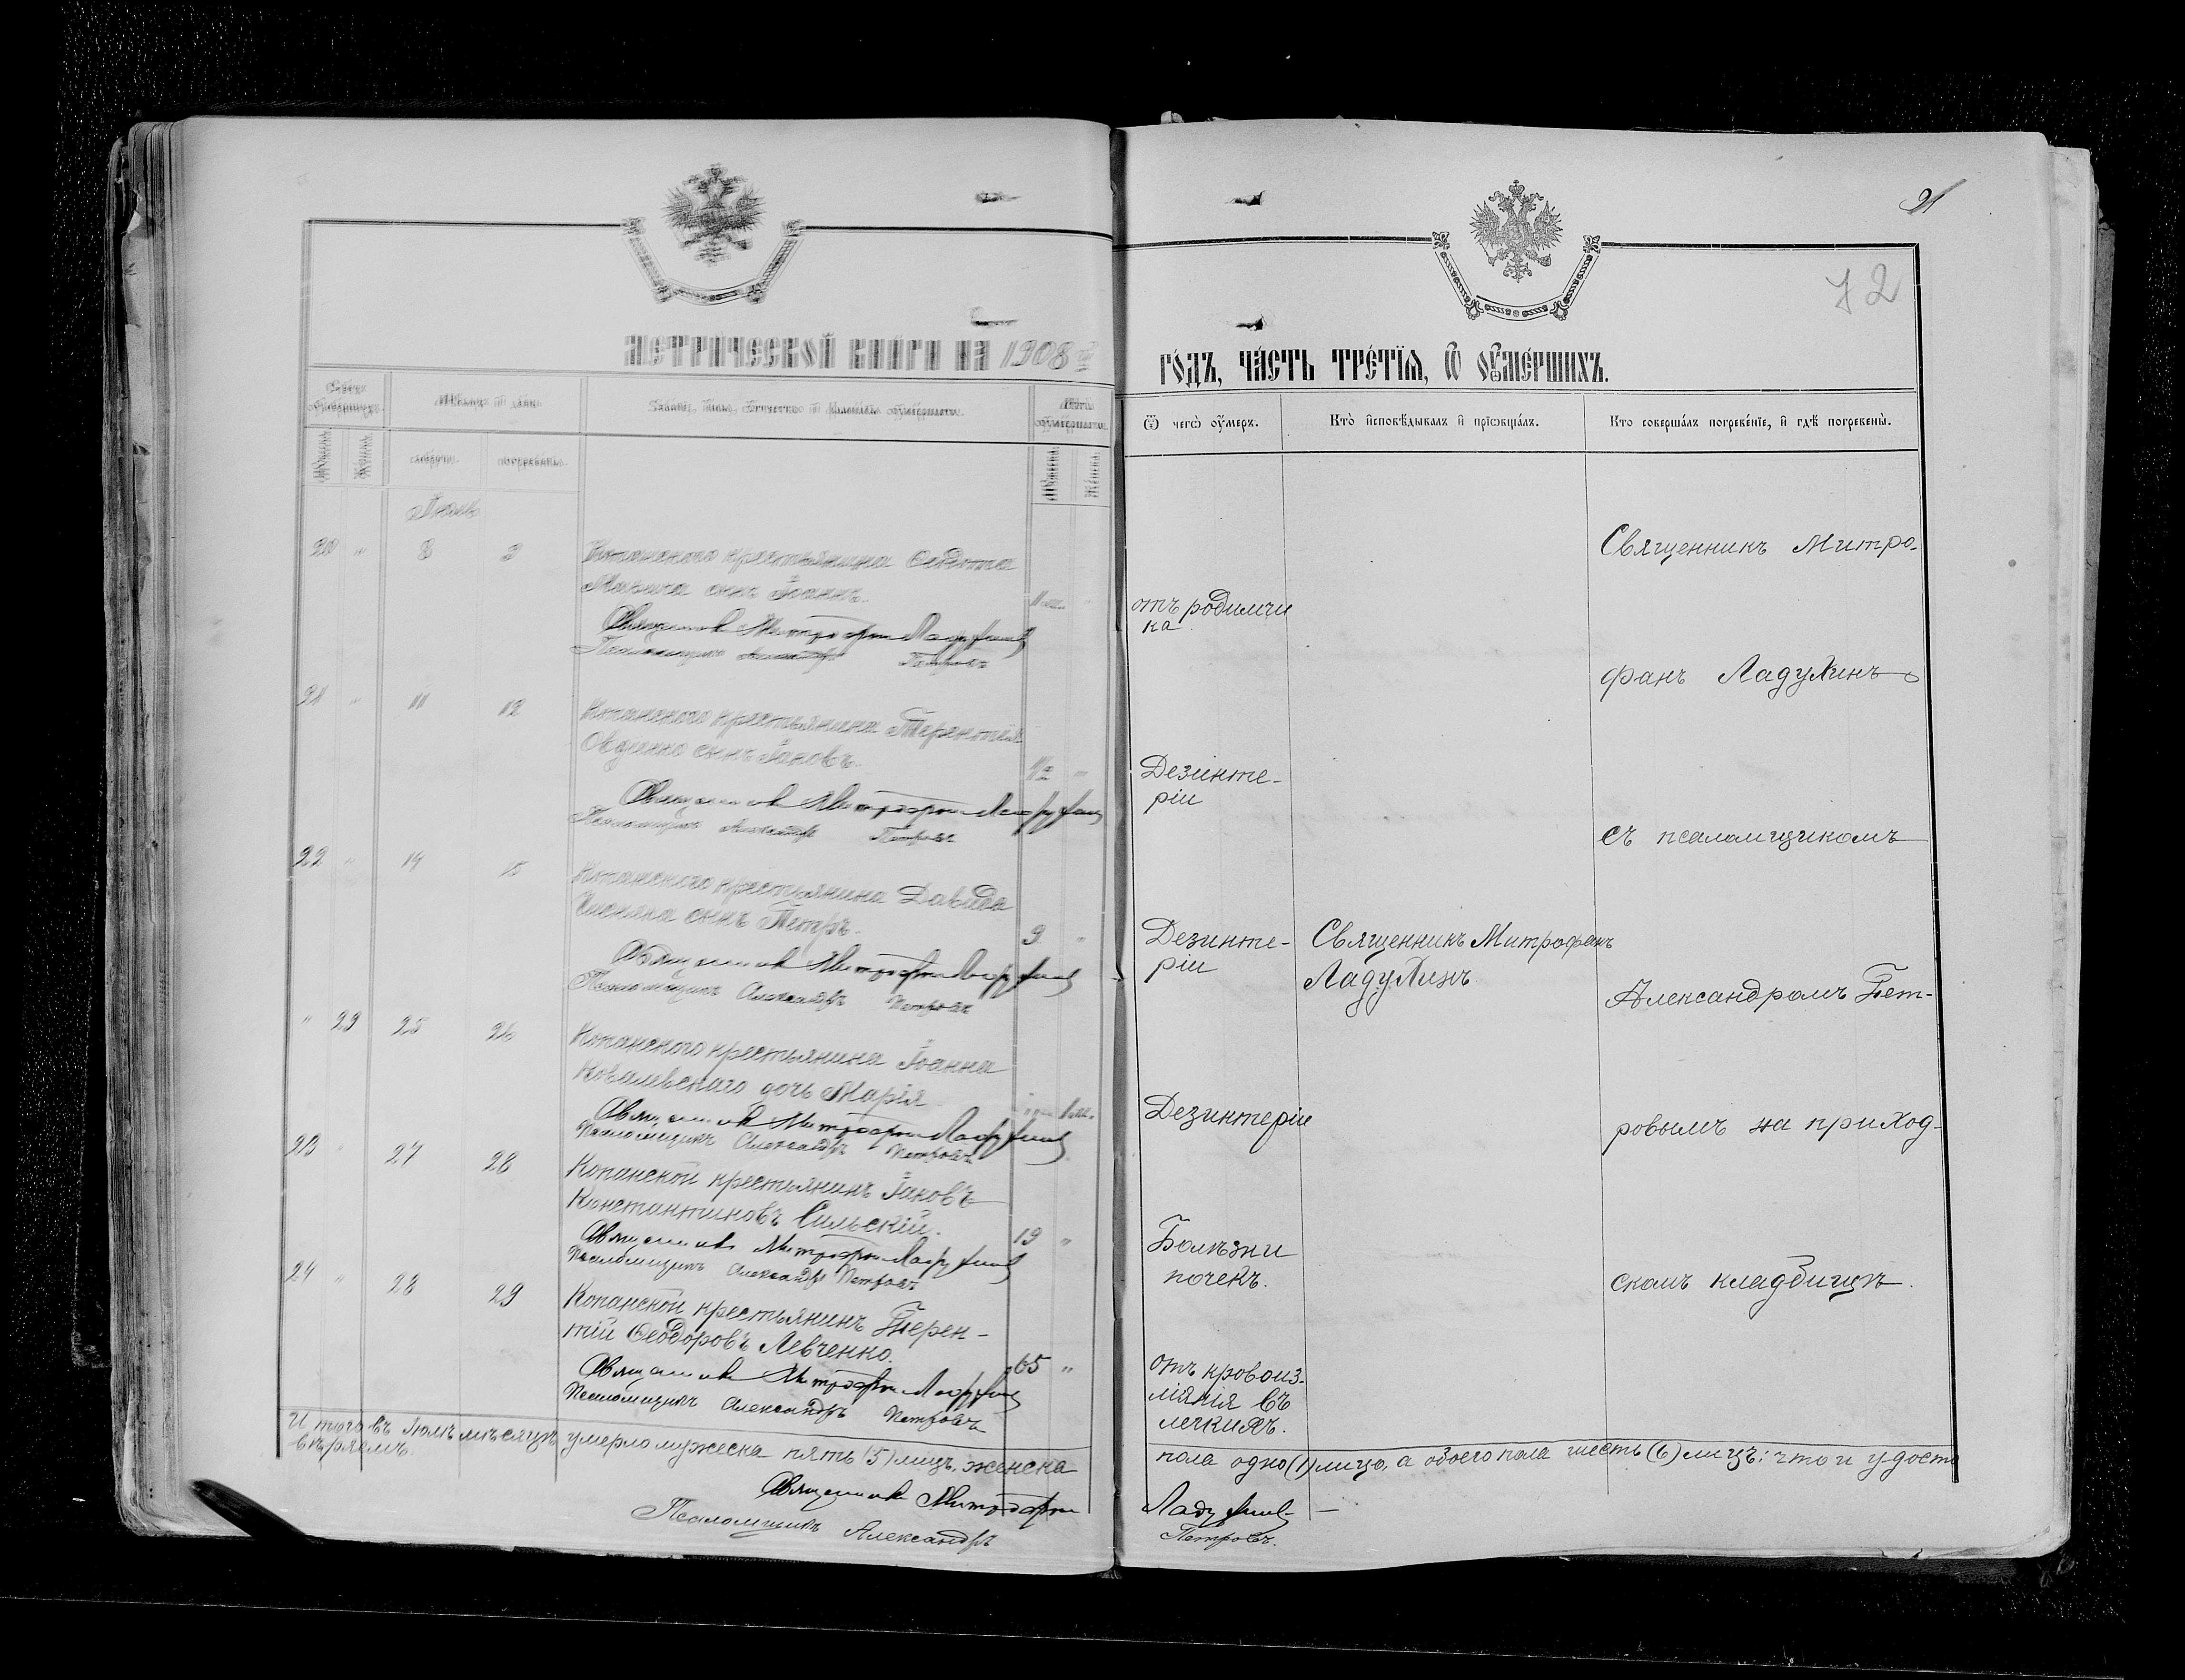 91
72
МЕТРИЧЕСКОЙ КНИГИ НА 1908 й
ГОДЪ, ЧАСТЬ ТРЕТІЯ, Ѿ ОУМЕРШИХЪ.
Мѣсяцъ и день.
Званіе, имя, отчество и фамилія оумершагω.
Лѣта оумершагω.
Ѿ чегω оумеръ.
Кто исповѣдывалъ и пріωбщалъ.
Кто совершалъ погребеніе, и гдѣ погребены.
смерти.
погребенія.
Мужеска.
Женска.
Іюль
20 " 8 9
Копанского крестьянина Феодота
сынъ Іоаннъ.
1 м.
Священникъ Митрофанъ Ладухинъ
Псаломщикъ Александръ Петровъ
отъ родимчи
ка
Священникъ Митро-
фанъ Ладухинъ
21 " 11 12
Копанского крестьянина Терентія
Овдіенко сынъ Іаковъ.
1/2 "
Священникъ Митрофанъ Ладухинъ
Псаломщикъ Александръ Петровъ
Дезинте-
ріи
съ псаломщикомъ
22 " 14 15
Копанского крестьянина Давида
сынъ Петръ.
9 "
Священникъ Митрофанъ Ладухинъ
Псаломщикъ Александръ Петровъ
Дезинте-
ріи
Священникъ Митрофанъ
Ладухинъ
Александромъ Пет-
" 29 25 26
Копанского крестьянина Іоанна
Ковалевскаго дочь Марія
1 м.
Священникъ Митрофанъ Ладухинъ
Псаломщикъ Александръ Петровъ
Дезинтеріи
ровымъ на приход-
23 " 27 28
Копанской крестьянинъ Іаковъ
Константиновъ Сильскій.
19 "
Священникъ Митрофанъ Ладухинъ
Псаломщикъ Александръ Петровъ
Болѣзни
почекъ.
скомъ кладбищѣ.
24 " 28 29
Копанской крестьянинъ Терен-
тій Феодоровъ Левченко.
65 "
Священникъ Митрофанъ Ладухинъ
Псаломщикъ Александръ Петровъ
отъ кровоиз-
ліянія въ
легкихъ.
Итого въ Іюлѣ мѣсяцѣ умерло мужеска пять (5) лицъ, женска
пола одно (1) лицо, а обоего пола шесть (6) лицъ: что и удосто
вѣряемъ.
Священникъ Митрофанъ Ладухинъ
Псаломщикъ Александръ Петровъ.